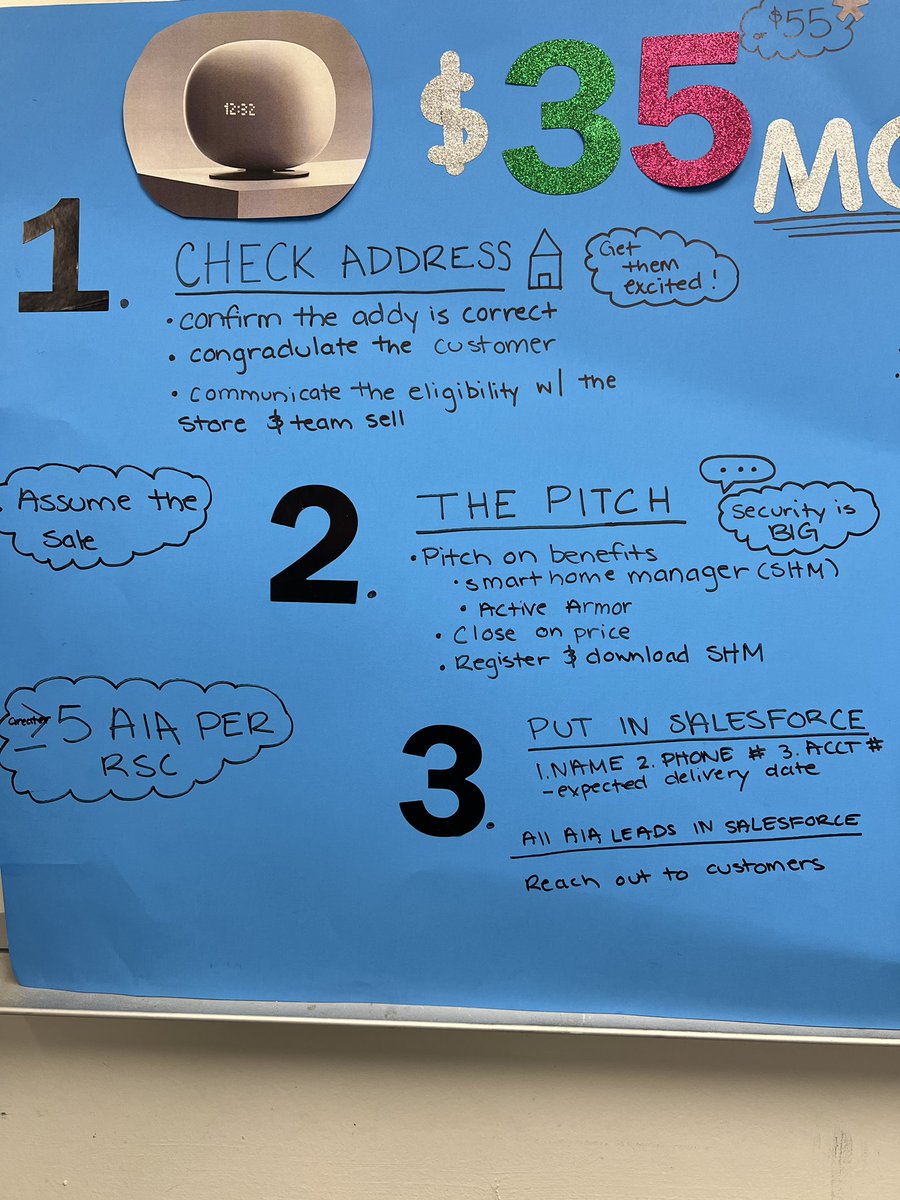 12:32
$35
or $55
MO
1. CHECK ADDRESS
Get
them
excited!
• confirm the addy is correct
• congradulate the customer
• communicate the eligibility w/ the
store & team sell
Assume the
Sale
2. THE PITCH
...
Security is
BIG
• Pitch on benefits
• smart home manager (SHM)
• Active Armor
• Close on price
• Register & download SHM
Greater
≥5 AIA PER
RSC
3. PUT IN SALESFORCE
1. NAME 2. PHONE # 3. ACCT #
-expected delivery date
All AIA LEADS IN SALESFORCE
Reach out to customers